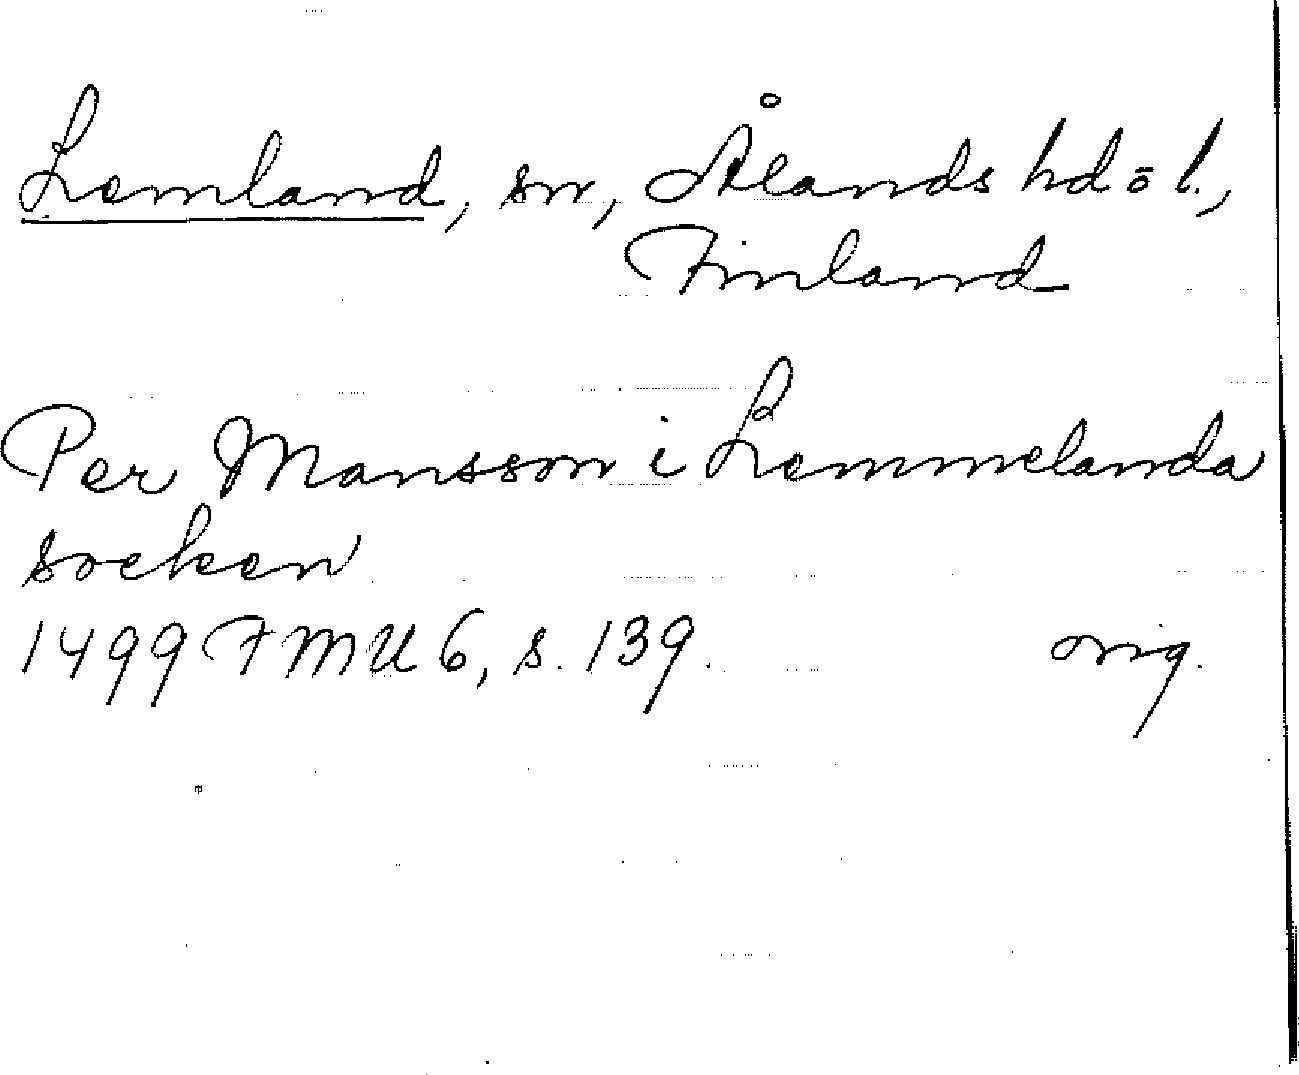 Lemland, sn, Ålands hd o l.,
Finland
Per Mansson i Lemmelanda
socken
1499 FMU 6, s. 139. orig.